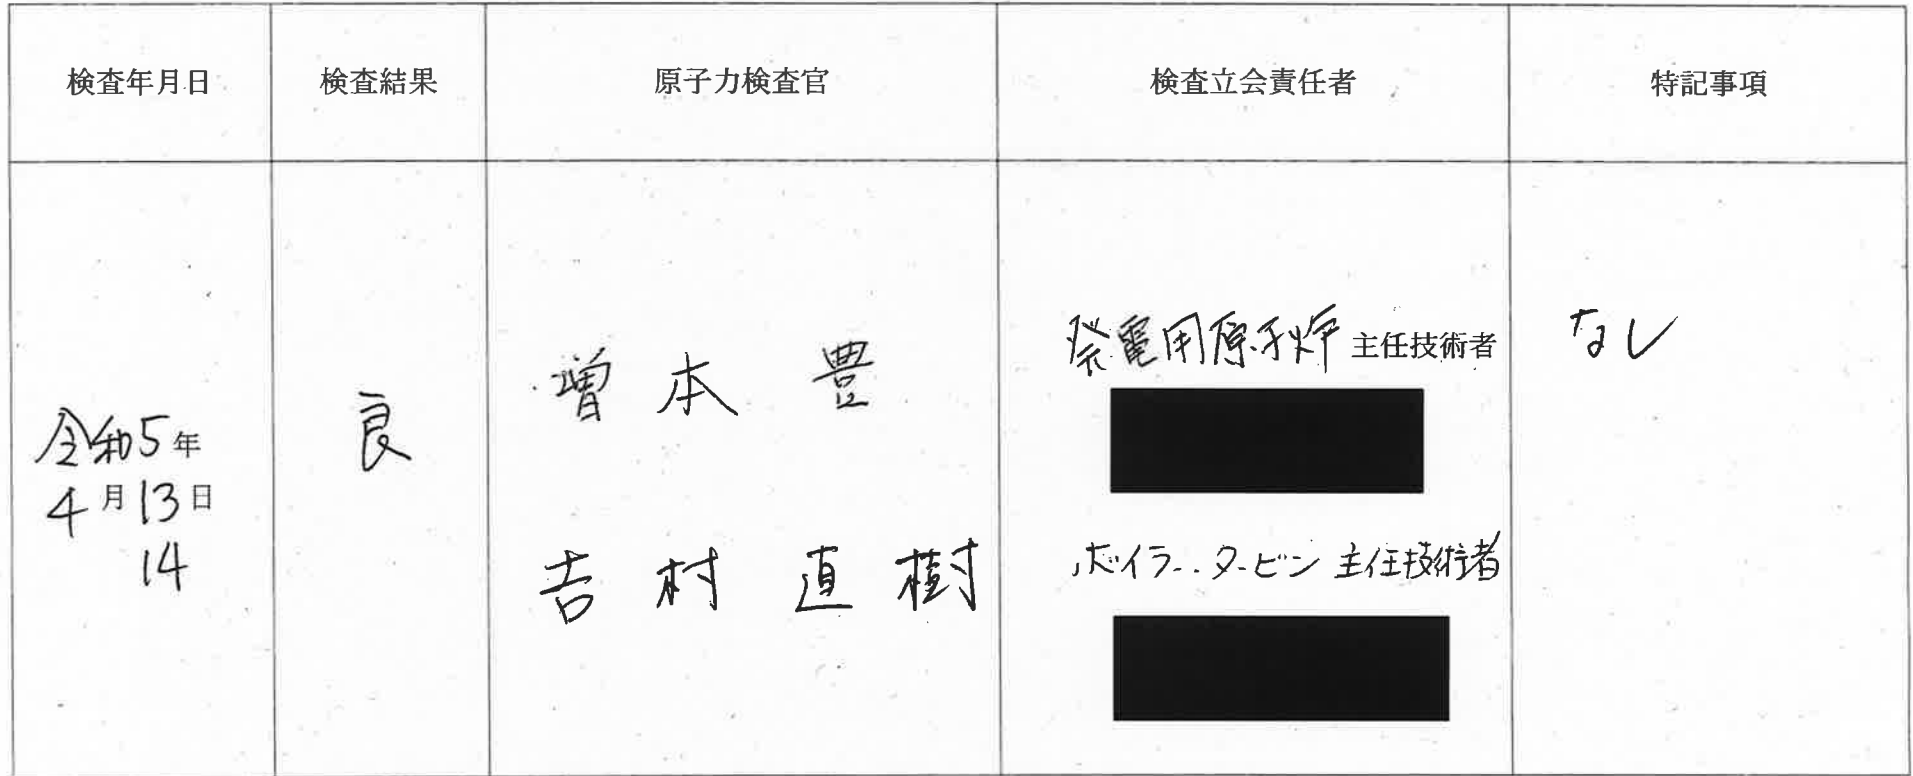 検査年月日 検査結果 原子力検査官 検査立会責任者 特記事項
令和5年
4月13日
14
良
増本 豊
吉村 直樹
発電用原子炉主任技術者
ボイラー・タービン主任技術者
なし